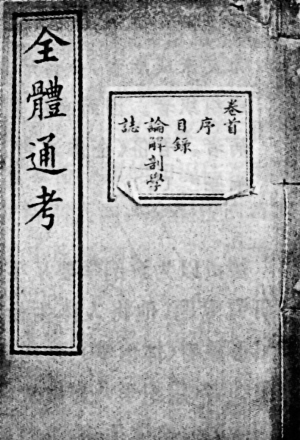 全體通考
卷首
序
目錄
論解剖學
誌